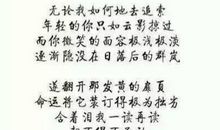 无论我如何地去追索
年轻的你只如云影掠过
而你微笑的面容极浅极淡
逐渐隐没在日落后的群岚
遂翻开那发黄的扉页
命运将它装订得极为拙劣
含泪我一读再读